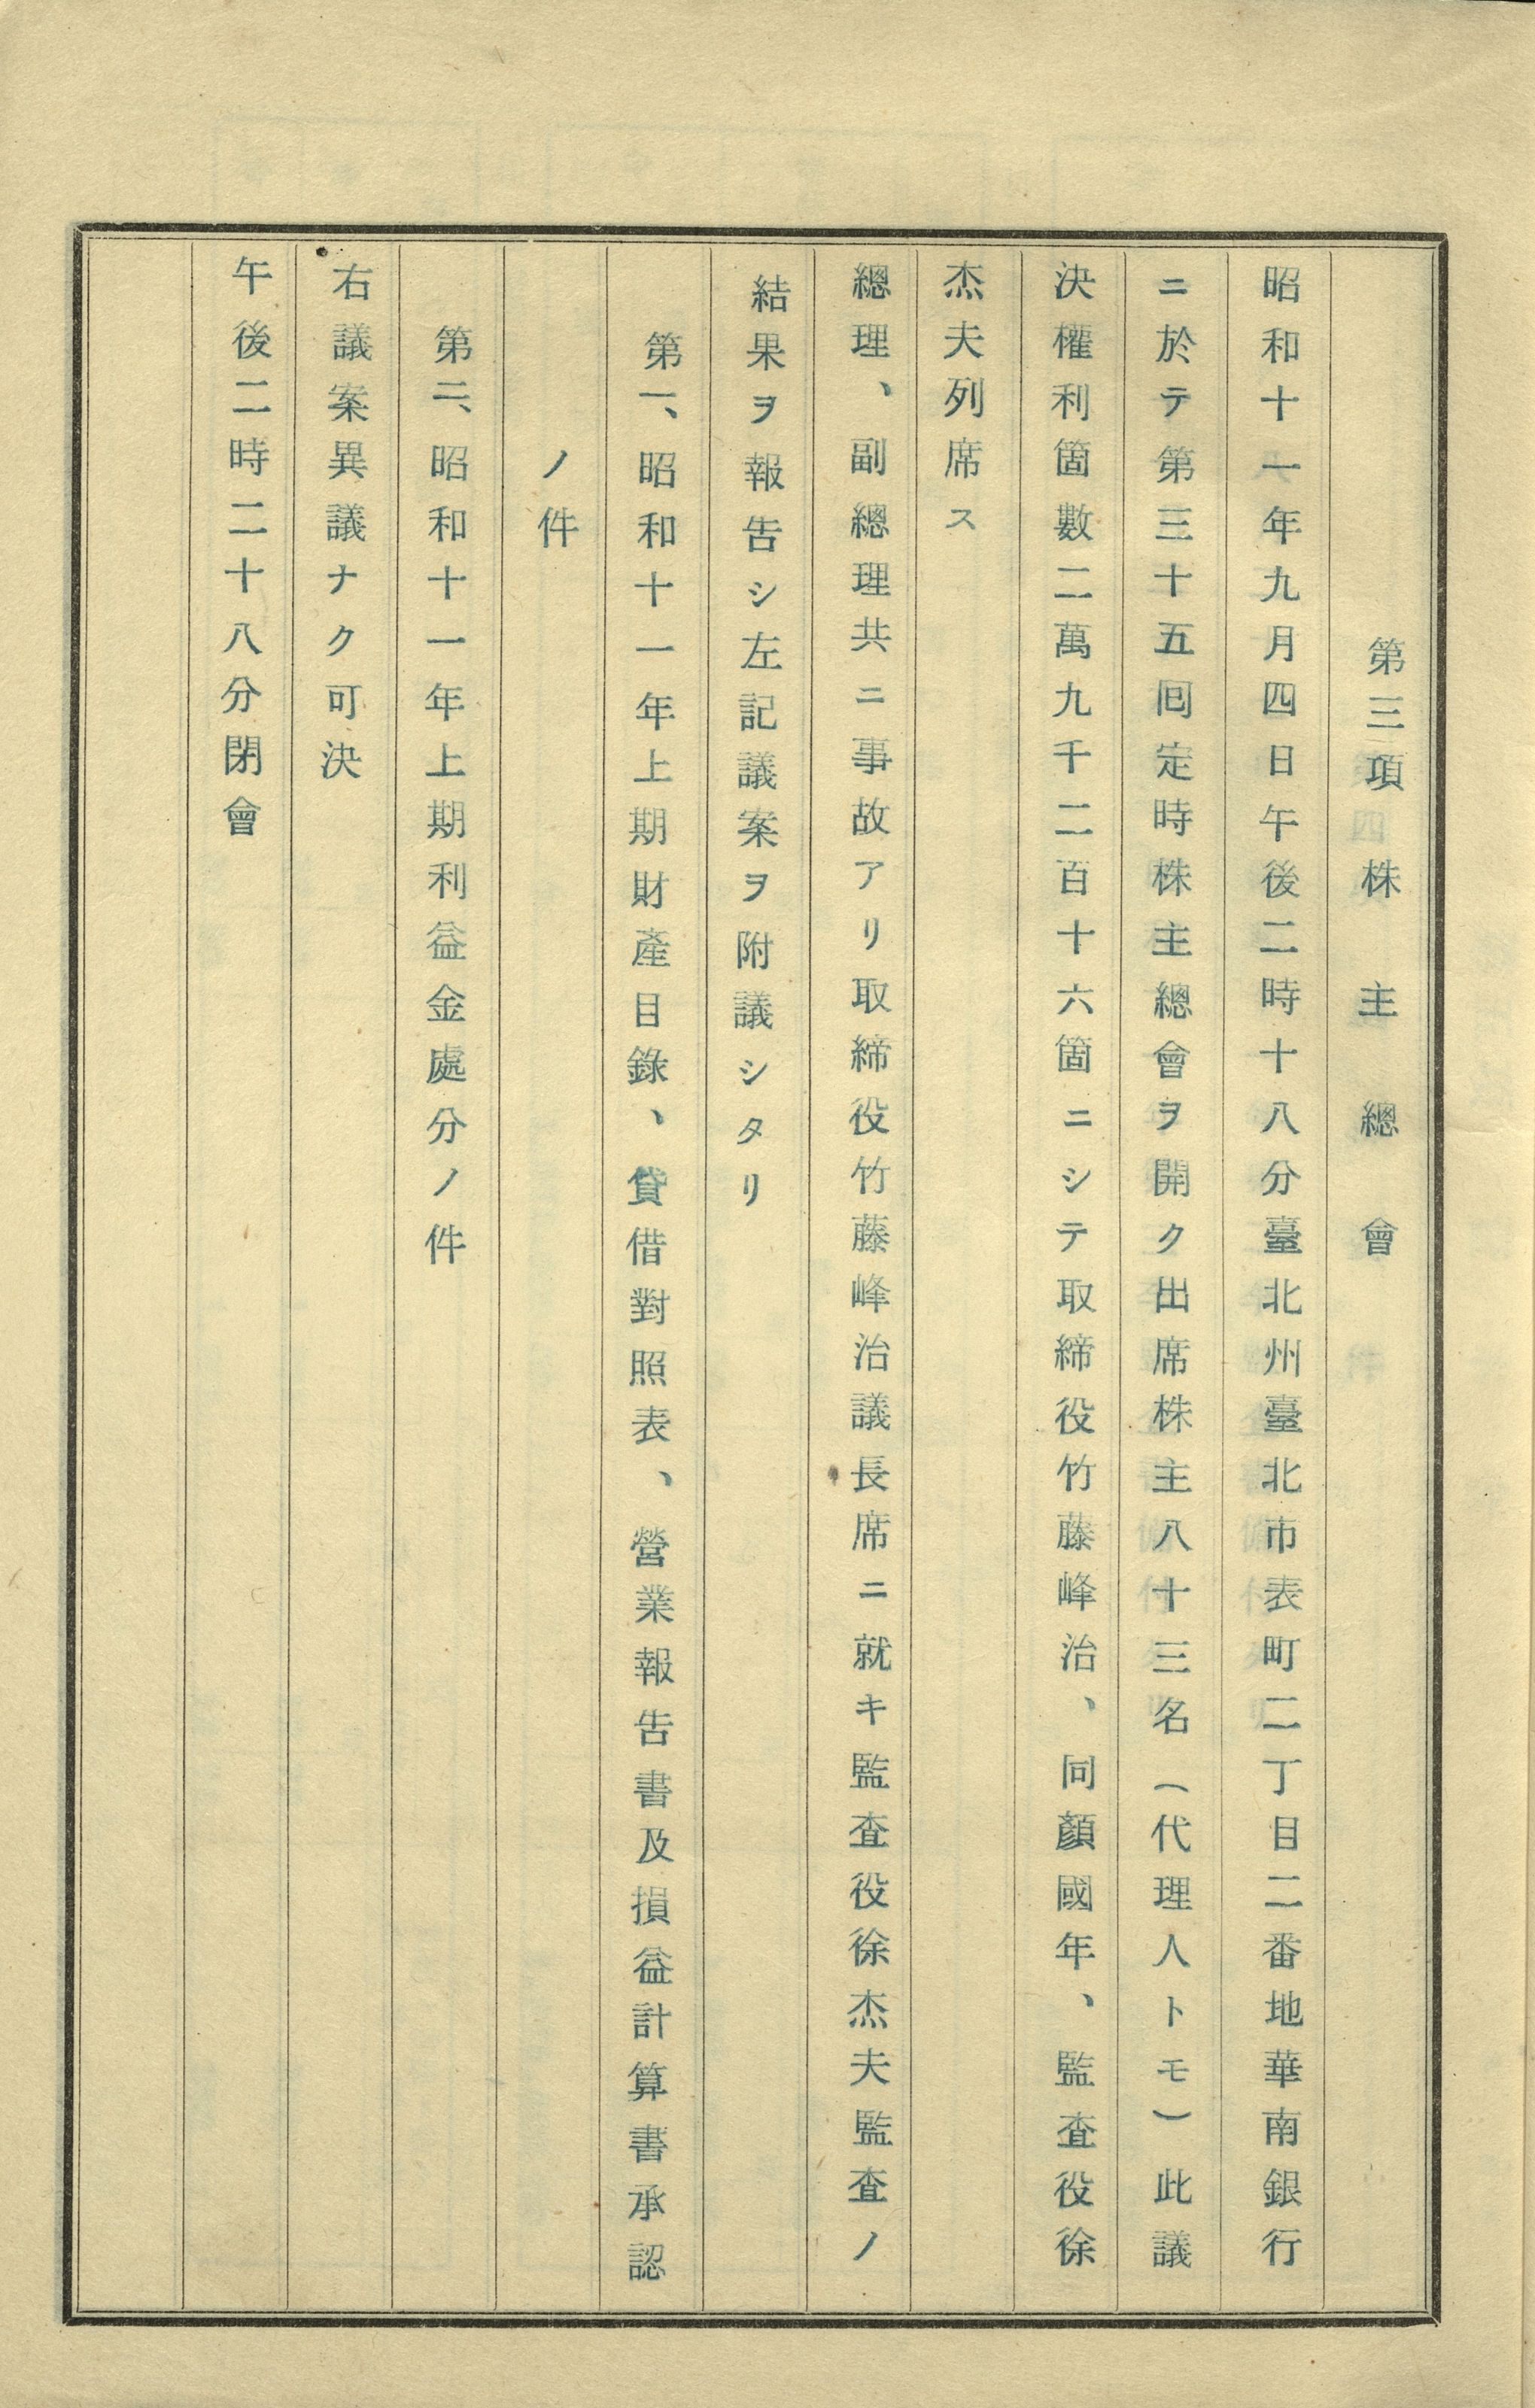 第三項 株主總會
昭和十一年九月四日午後二時十八分臺北州臺北市表町二丁目二番地華南銀行
ニ於テ第三十五囘定時株主總會ヲ開ク出席株主八十三名(代理人トモ)此議
決權利箇數二萬九千二百十六箇ニシテ取締役竹藤峰治、同顏國年、監査役徐
杰夫列席ス
總理、副總理共ニ事故アリ取締役竹藤峰治議長席ニ就キ監査役徐杰夫監査ノ
結果ヲ報告シ左記議案ヲ附議シタリ
第一、昭和十一年上期財產目錄、貸借對照表、營業報告書及損益計算書承認
ノ件
第二、昭和十一年上期利益金處分ノ件
右議案異議ナク可決
午後二時二十八分閉會